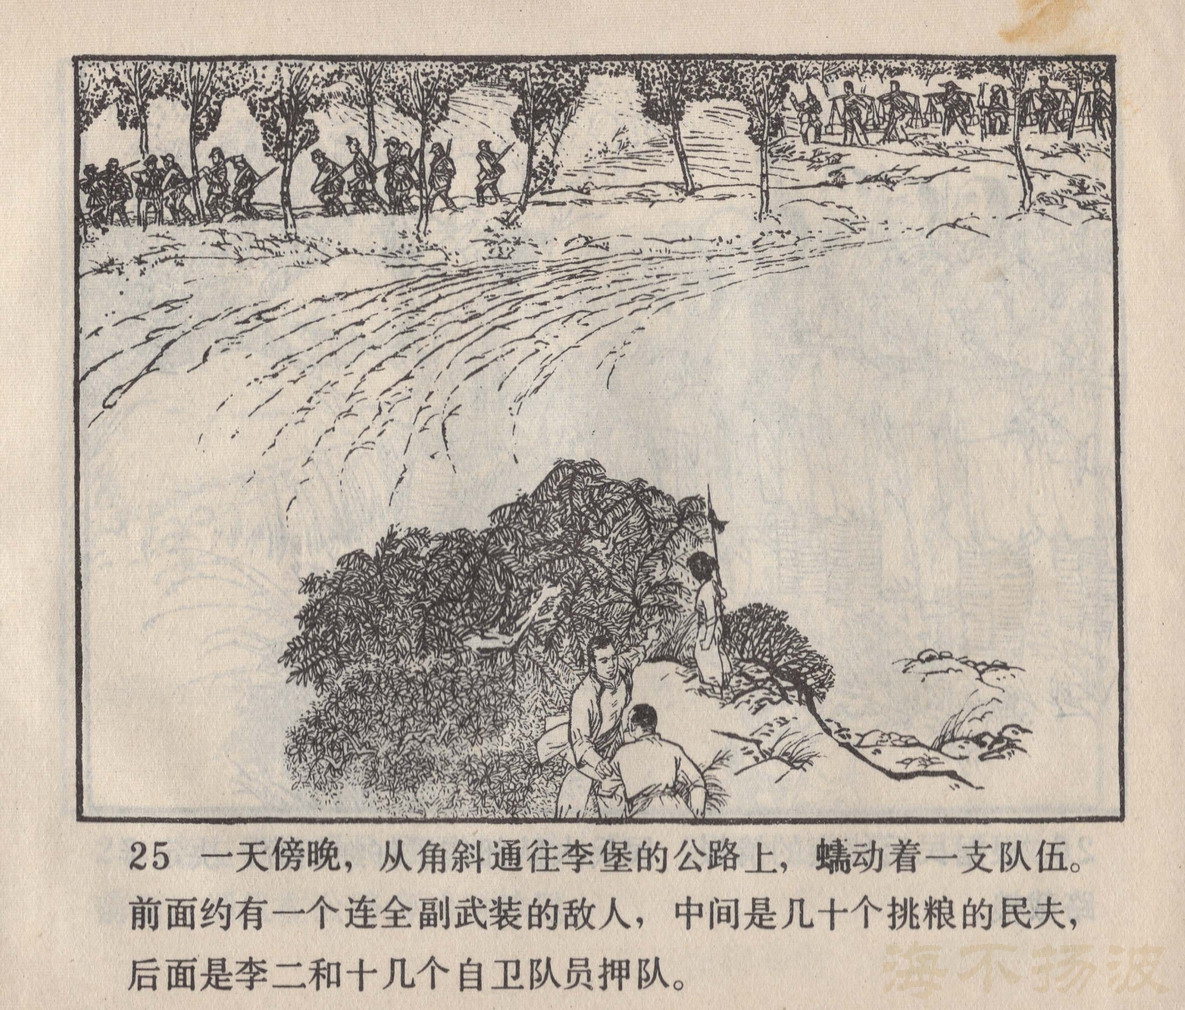 25 一天傍晚，从角斜通往李堡的公路上，蠕动着一支队伍。
前面约有一个连全副武装的敌人，中间是几十个挑粮的民夫，
后面是李二和十几个自卫队员押队。
海不扬波